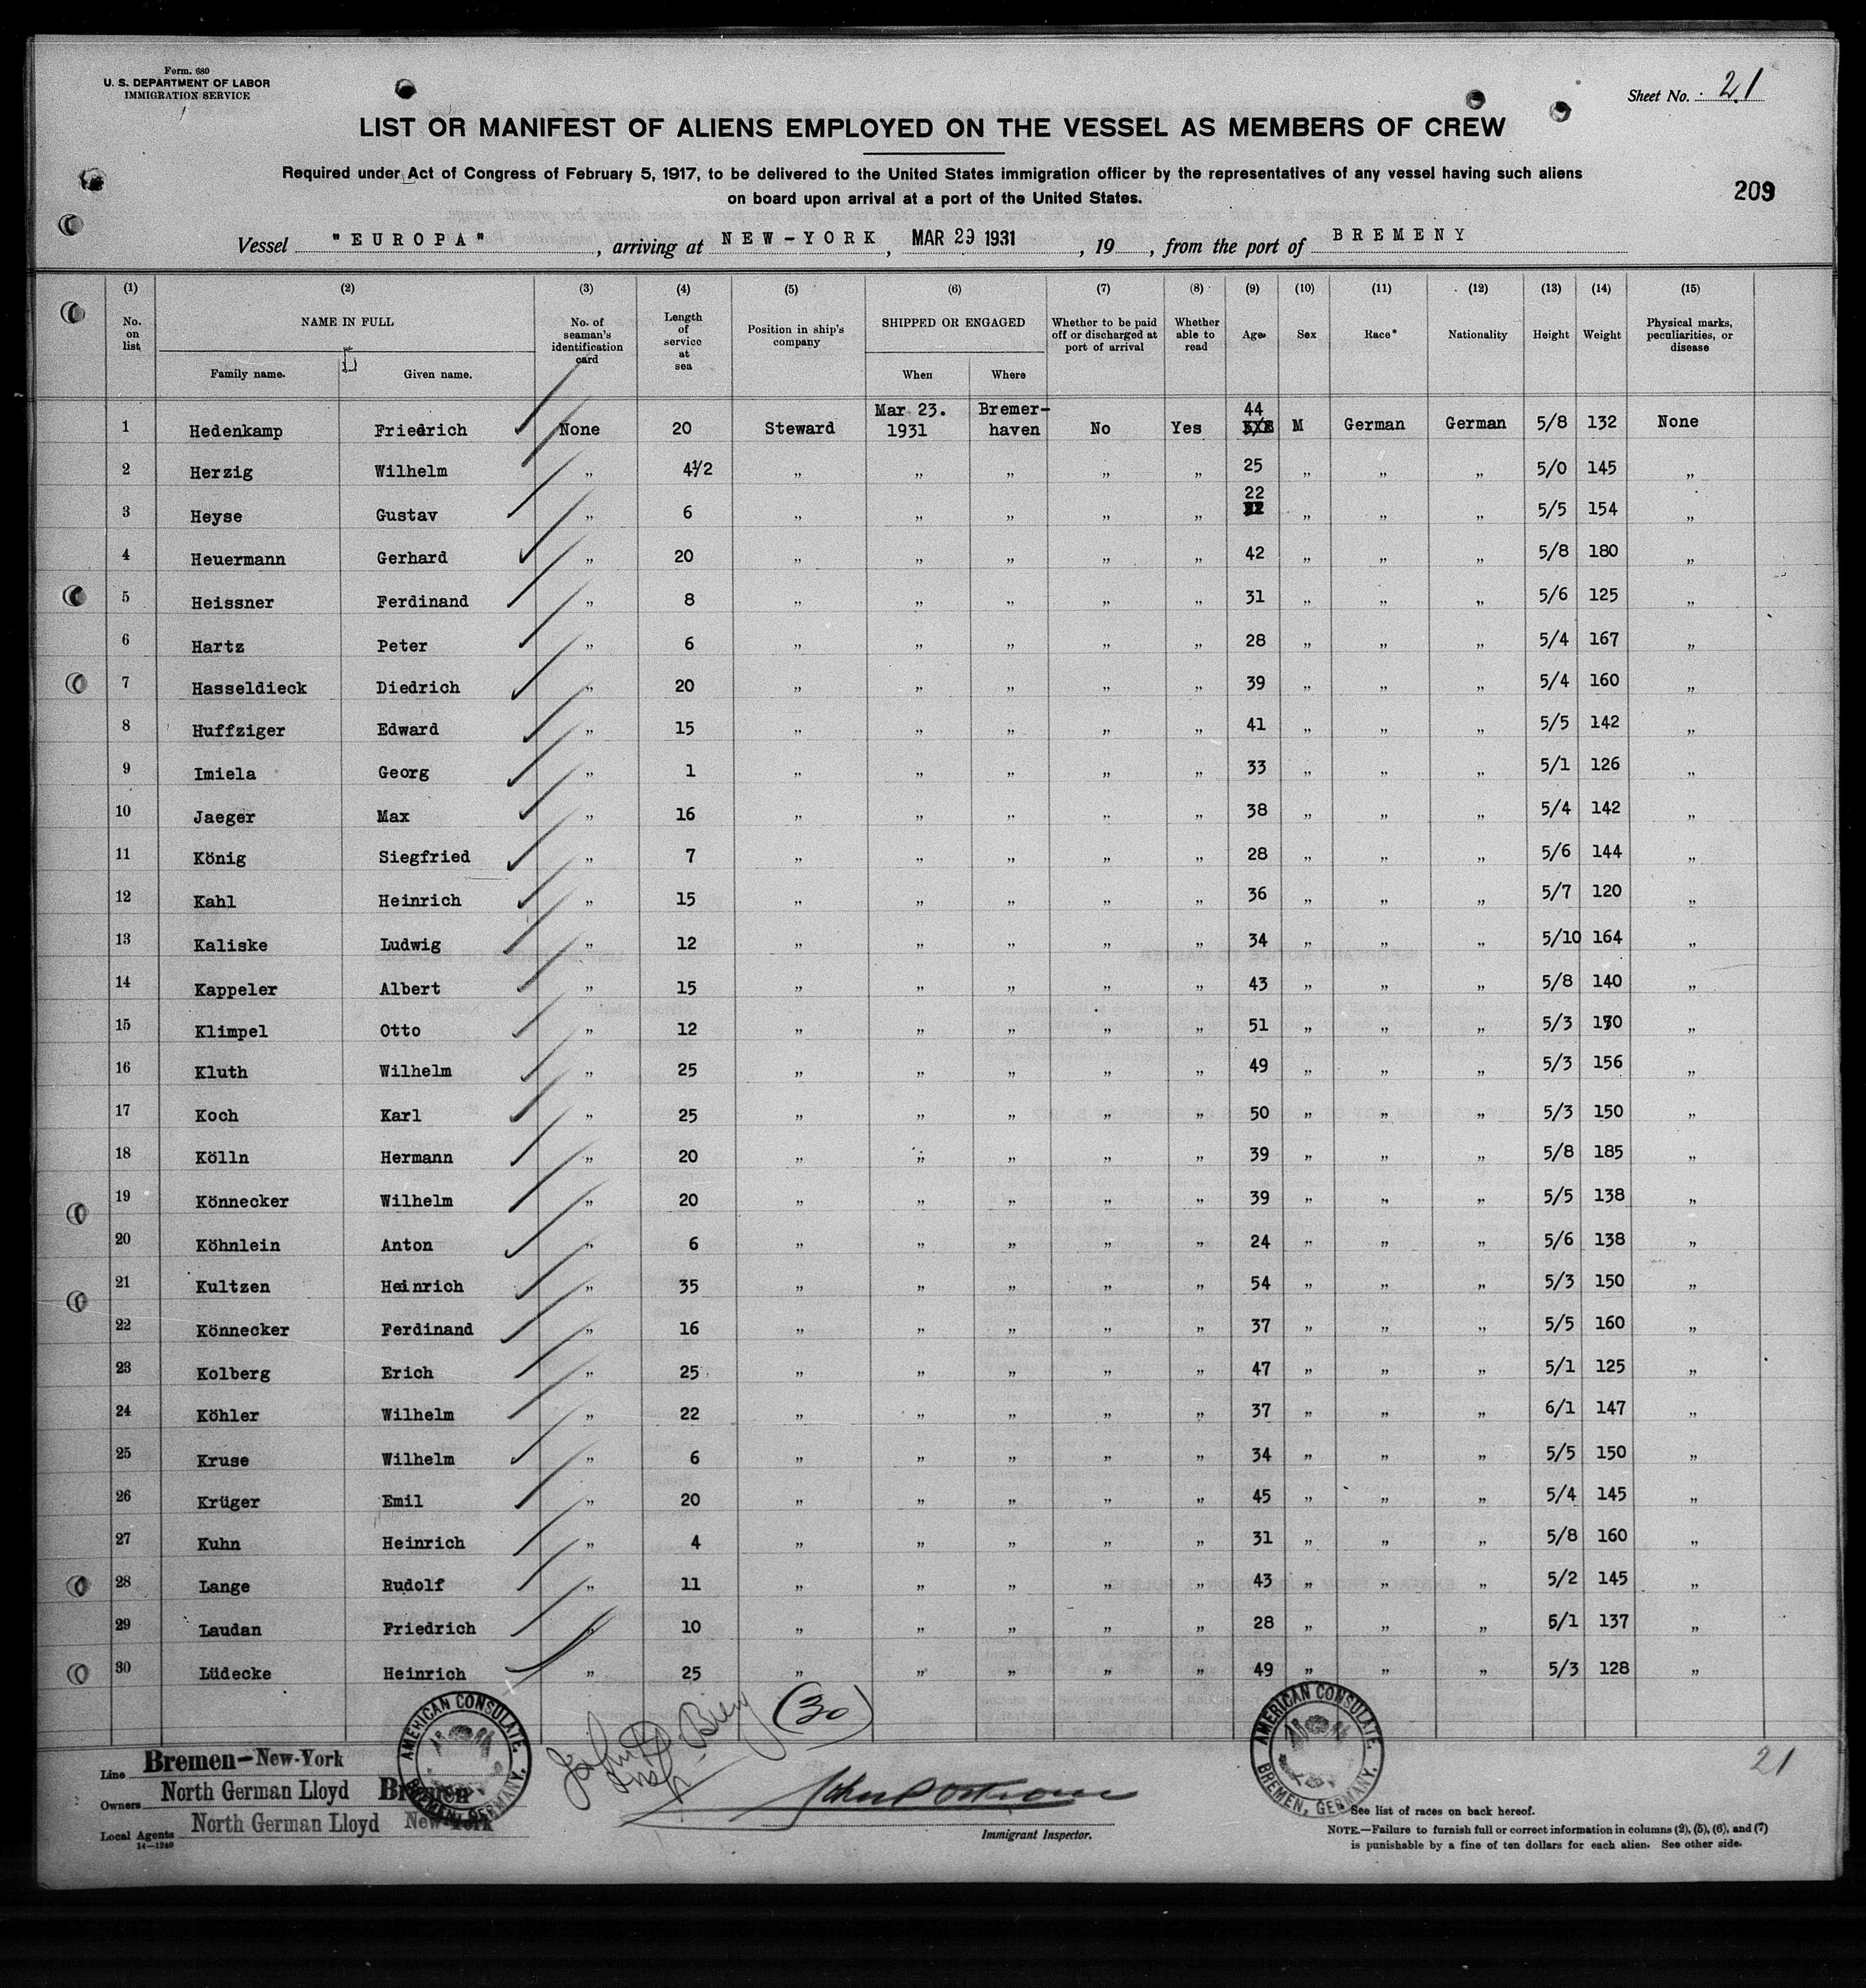 Form. 680
U. S. DEPARTMENT OF LABOR
IMMIGRATION SERVICE
Sheet No. 21
LIST OR MANIFEST OF ALIENS EMPLOYED ON THE VESSEL AS MEMBERS OF CREW
Required under Act of Congress of February 5, 1917, to be delivered to the United States immigration officer by the representatives of any vessel having such aliens
on board upon arrival at a port of the United States.
209
Vessel "EUROPA", arriving at NEW-YORK, MAR 29 1931, 19, from the port of BREMENY
(1) (2) (3) (4) (5) (6) (7) (8) (9) (10) (11) (12) (13) (14) (15)
No. on list NAME IN FULL No. of seaman's identification card Length of service at sea Position in ship's company SHIPPED OR ENGAGED Whether to be paid off or discharged at port of arrival Whether able to read Age Sex Race* Nationality Height Weight Physical marks, peculiarities, or disease
Family name. Given name. When Where
1 Hedenkamp Friedrich None 20 Steward Mar 23. 1931 Bremer-haven No Yes 44 M German German 5/8 132 None
2 Herzig Wilhelm „ 4½ „ „ „ „ „ 25 „ „ „ 5/0 145 „
3 Heyse Gustav „ 6 „ „ „ „ „ 22 „ „ „ 5/5 154 „
4 Heuermann Gerhard „ 20 „ „ „ „ „ 42 „ „ „ 5/8 180 „
5 Heissner Ferdinand „ 8 „ „ „ „ „ 31 „ „ „ 5/6 125 „
6 Hartz Peter „ 6 „ „ „ „ „ 28 „ „ „ 5/4 167 „
7 Hasseldieck Diedrich „ 20 „ „ „ „ „ 39 „ „ „ 5/4 160 „
8 Huffziger Edward „ 15 „ „ „ „ „ 41 „ „ „ 5/5 142 „
9 Imiela Georg „ 1 „ „ „ „ „ 33 „ „ „ 5/1 126 „
10 Jaeger Max „ 16 „ „ „ „ „ 38 „ „ „ 5/4 142 „
11 König Siegfried „ 7 „ „ „ „ „ 28 „ „ „ 5/6 144 „
12 Kahl Heinrich „ 15 „ „ „ „ „ 36 „ „ „ 5/7 120 „
13 Kaliske Ludwig „ 12 „ „ „ „ „ 34 „ „ „ 5/10 164 „
14 Kappeler Albert „ 15 „ „ „ „ „ 43 „ „ „ 5/8 140 „
15 Klimpel Otto „ 12 „ „ „ „ „ 51 „ „ „ 5/3 „
16 Kluth Wilhelm „ 25 „ „ „ „ „ 49 „ „ „ 5/3 156 „
17 Koch Karl „ 25 „ „ „ „ „ 50 „ „ „ 5/3 150 „
18 Kölln Hermann „ 20 „ „ „ „ „ 39 „ „ „ 5/8 185 „
19 Könnecker Wilhelm „ 20 „ „ „ „ „ 39 „ „ „ 5/5 138 „
20 Köhnlein Anton „ 6 „ „ „ „ „ 24 „ „ „ 5/6 138 „
21 Kultzen Heinrich „ 35 „ „ „ „ „ 54 „ „ „ 5/3 150 „
22 Könnecker Ferdinand „ 16 „ „ „ „ „ 37 „ „ „ 5/5 160 „
23 Kolberg Erich „ 25 „ „ „ „ „ 47 „ „ „ 5/1 125 „
24 Köhler Wilhelm „ 22 „ „ „ „ „ 37 „ „ „ 6/1 147 „
25 Kruse Wilhelm „ 6 „ „ „ „ „ 34 „ „ „ 5/5 150 „
26 Krüger Emil „ 20 „ „ „ „ „ 45 „ „ „ 5/4 145 „
27 Kuhn Heinrich „ 4 „ „ „ „ „ 31 „ „ „ 5/8 160 „
28 Lange Rudolf „ 11 „ „ „ „ „ 43 „ „ „ 5/2 145 „
29 Laudan Friedrich „ 10 „ „ „ „ „ 28 „ „ „ 5/1 137 „
30 Lüdecke Heinrich „ 25 „ „ „ „ „ 49 „ „ „ 5/3 128 „
(30)
AMERICAN CONSULATE. BREMEN, GERMANY.
AMERICAN CONSULATE. BREMEN, GERMANY.
21
Line Bremen-New-York
Owners North German Lloyd Bremen
Local Agents North German Lloyd New-York
14-1240
Immigrant Inspector.
See list of races on back hereof.
NOTE.—Failure to furnish full or correct information in columns (2), (5), (6), and (7)
is punishable by a fine of ten dollars for each alien. See other side.